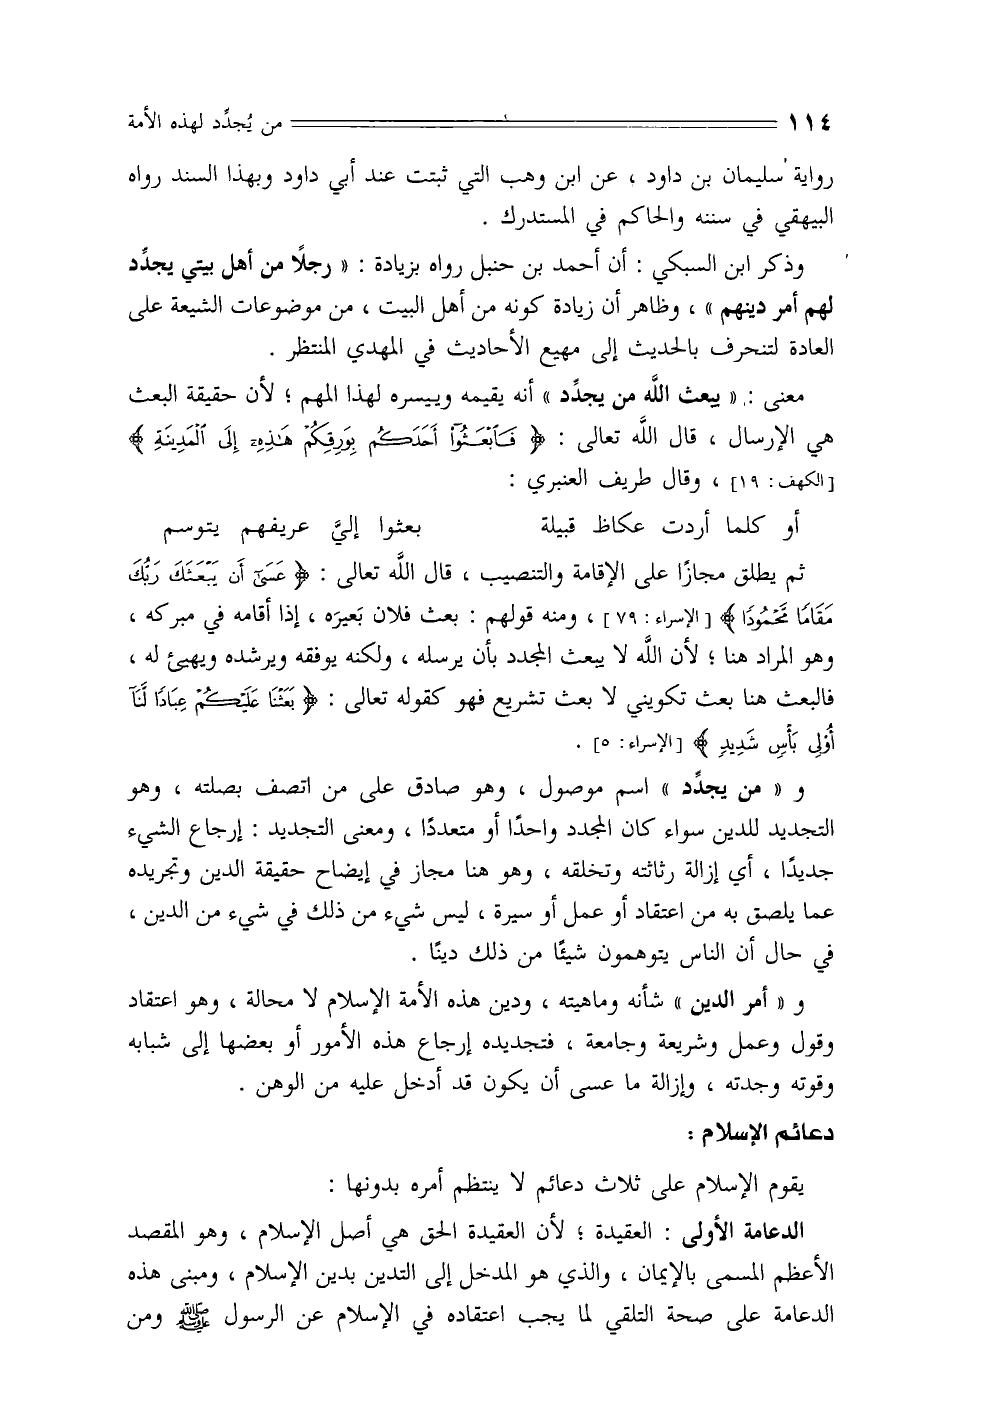 ١١٤ من يُجدِّد لهذه الأمة
رواية سليمان بن داود ، عن ابن وهب التي ثبتت عند أبي داود وبهذا السند رواه
البيهقي في سننه والحاكم في المستدرك .
وذكر ابن السبكي : أن أحمد بن حنبل رواه بزيادة : « رجلًا من أهل بيتي يجدِّد
لهم أمر دينهم » ، وظاهر أن زيادة كونه من أهل البيت ، من موضوعات الشيعة على
العادة لتنحرف بالحديث إلى مهيع الأحاديث في المهدي المنتظر .
معنى : « يبعث اللَّه من يجدِّد » أنه يقيمه وييسره لهذا المهم ؛ لأن حقيقة البعث
هي الإرسال ، قال اللَّه تعالى : ﴿ فَٱبْعَثُوٓا۟ أَحَدَكُم بِوَرِقِكُمْ هَٰذِهِۦٓ إِلَى ٱلْمَدِينَةِ ﴾
[الكهف: ١٩] ، وقال طريف العنبري :
أو كلما أردت عكاظ قبيلة بعثوا إليَّ عريفهم يتوسم
ثم يطلق مجازًا على الإقامة والتنصيب ، قال اللَّه تعالى : ﴿ عَسَىٰٓ أَن يَبْعَثَكَ رَبُّكَ
مَقَامًا مَّحْمُودًا ﴾ [الإسراء : ٧٩] ، ومنه قولهم : بعث فلان بَعيرَه ، إذا أقامه في مبركه ،
وهو المراد هنا ؛ لأن اللَّه لا يبعث المجدد بأن يرسله ، ولكنه يوفقه ويرشده ويهيئ له ،
فالبعث هنا بعث تكويني لا بعث تشريع فهو كقوله تعالى : ﴿ بَعَثْنَا عَلَيْكُمْ عِبَادًا لَّنَآ
أُو۟لِى بَأْسٍ شَدِيدٍ ﴾ [الإسراء: ٥] .
و « من يجدِّد » اسم موصول ، وهو صادق على من اتصف بصلته ، وهو
التجديد للدين سواء كان المجدد واحدًا أو متعددًا ، ومعنى التجديد : إرجاع الشيء
جديدًا ، أي إزالة رثاثته وتخلقه ، وهو هنا مجاز في إيضاح حقيقة الدين وتجريده
عما يلصق به من اعتقاد أو عمل أو سيرة ، ليس شيء من ذلك في شيء من الدين ،
في حال أن الناس يتوهمون شيئًا من ذلك دينًا .
و « أمر الدين » شأنه وماهيته ، ودين هذه الأمة الإسلام لا محالة ، وهو اعتقاد
وقول وعمل وشريعة وجامعة ، فتجديده إرجاع هذه الأمور أو بعضها إلى شبابه
وقوته وجدته ، وإزالة ما عسى أن يكون قد أدخل عليه من الوهن .
دعائم الإسلام :
يقوم الإسلام على ثلاث دعائم لا ينتظم أمره بدونها :
الدعامة الأولى : العقيدة ؛ لأن العقيدة الحق هي أصل الإسلام ، وهو المقصد
الأعظم المسمى بالإيمان ، والذي هو المدخل إلى التدين بدين الإسلام ، ومبنى هذه
الدعامة على صحة التلقي لما يجب اعتقاده في الإسلام عن الرسول ﷺ ومن